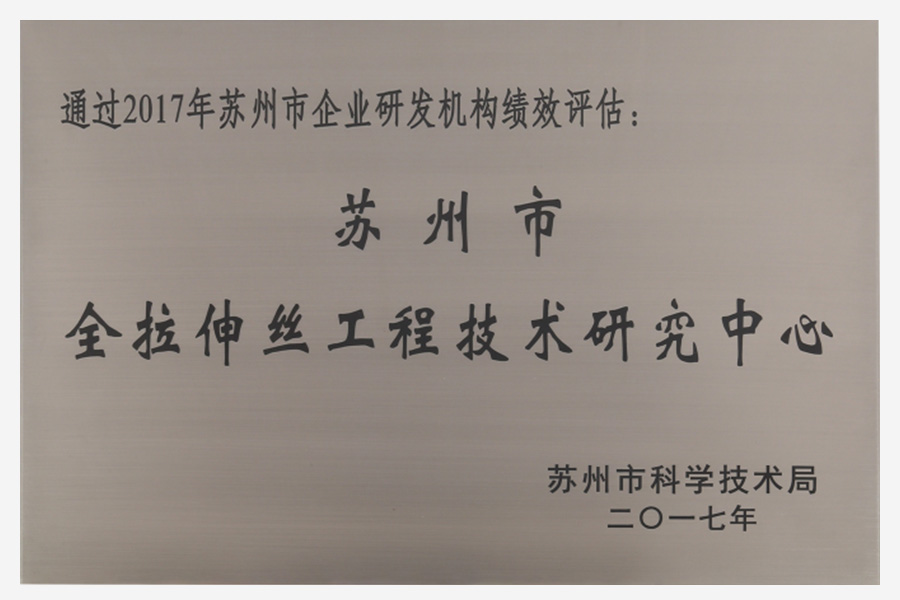 通过2017年苏州市企业研发机构绩效评估：
苏州市
全拉伸丝工程技术研究中心
苏州市科学技术局
二〇一七年